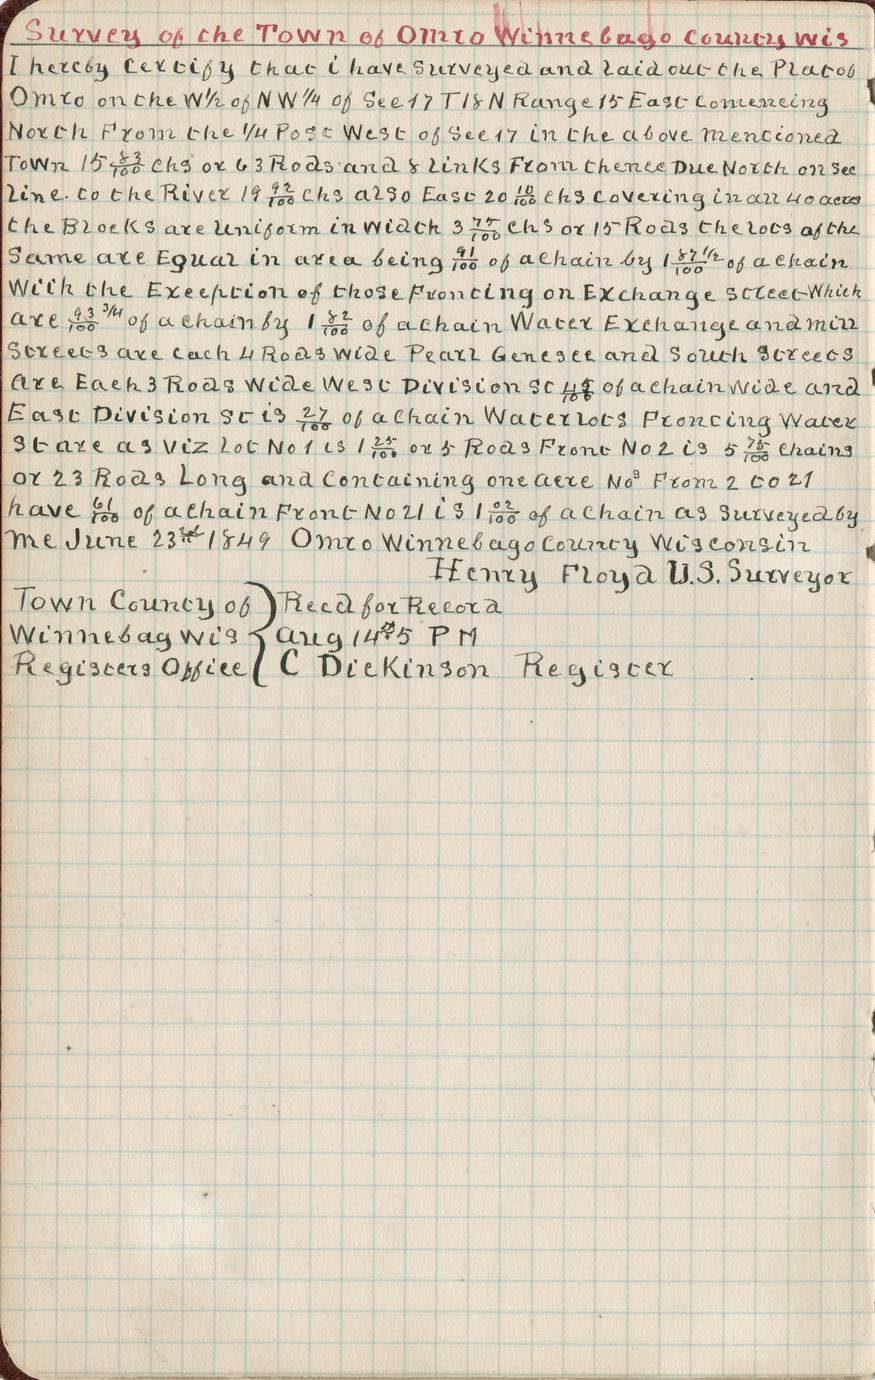 Survey of the Town of Omro Winnebago County Wis
I hereby Certify that i have Surveyed and laid out the Plat of
Omro on the W½ of NW¼ of Sec 17 T18N Range 15 East Comencing
North From the ¼ Post West of Sec 17 in the above mentioned
Town 15 83/100 Chs or 63 Rods and 8 Links From thence Due North on Sec
Line. to the River 19 92/100 Chs also East 20 10/100 Chs Covering in all 40 acres
the Blocks are Uniform in Width 3 75/100 Chs or 15 Rods the lots of the
Same are Equal in area being 91/100 of a Chain by 1 87½/100 of a Chain
With the Exception of those Fronting on Exchange Street Which
are 93¾/100 of a chain by 1 82/100 of a chain Water Exchange and mill
Streets are Each 4 Rods Wide Pearl Genesee and South Streets
are Each 3 Rods Wide West Division St 48/100 of a chain Wide and
East Division St is 27/100 of a Chain Water lots Fronting Water
St are as Viz Lot No 1 is 1 25/100 or 5 Rods Front No 2 is 5 75/100 Chains
or 23 Rods Long and Containing one acre Nos From 2 to 21
have 61/100 of a Chain Front No 21 is 1 02/100 of a Chain as Surveyed by
me June 23rd 1849 Omro Winnebago County Wisconsin
Henry Floyd U.S. Surveyor
Town County of } Recd for Record
Winnebag Wis { Aug 14th 5 PM
Registers Office { C Dickinson Register